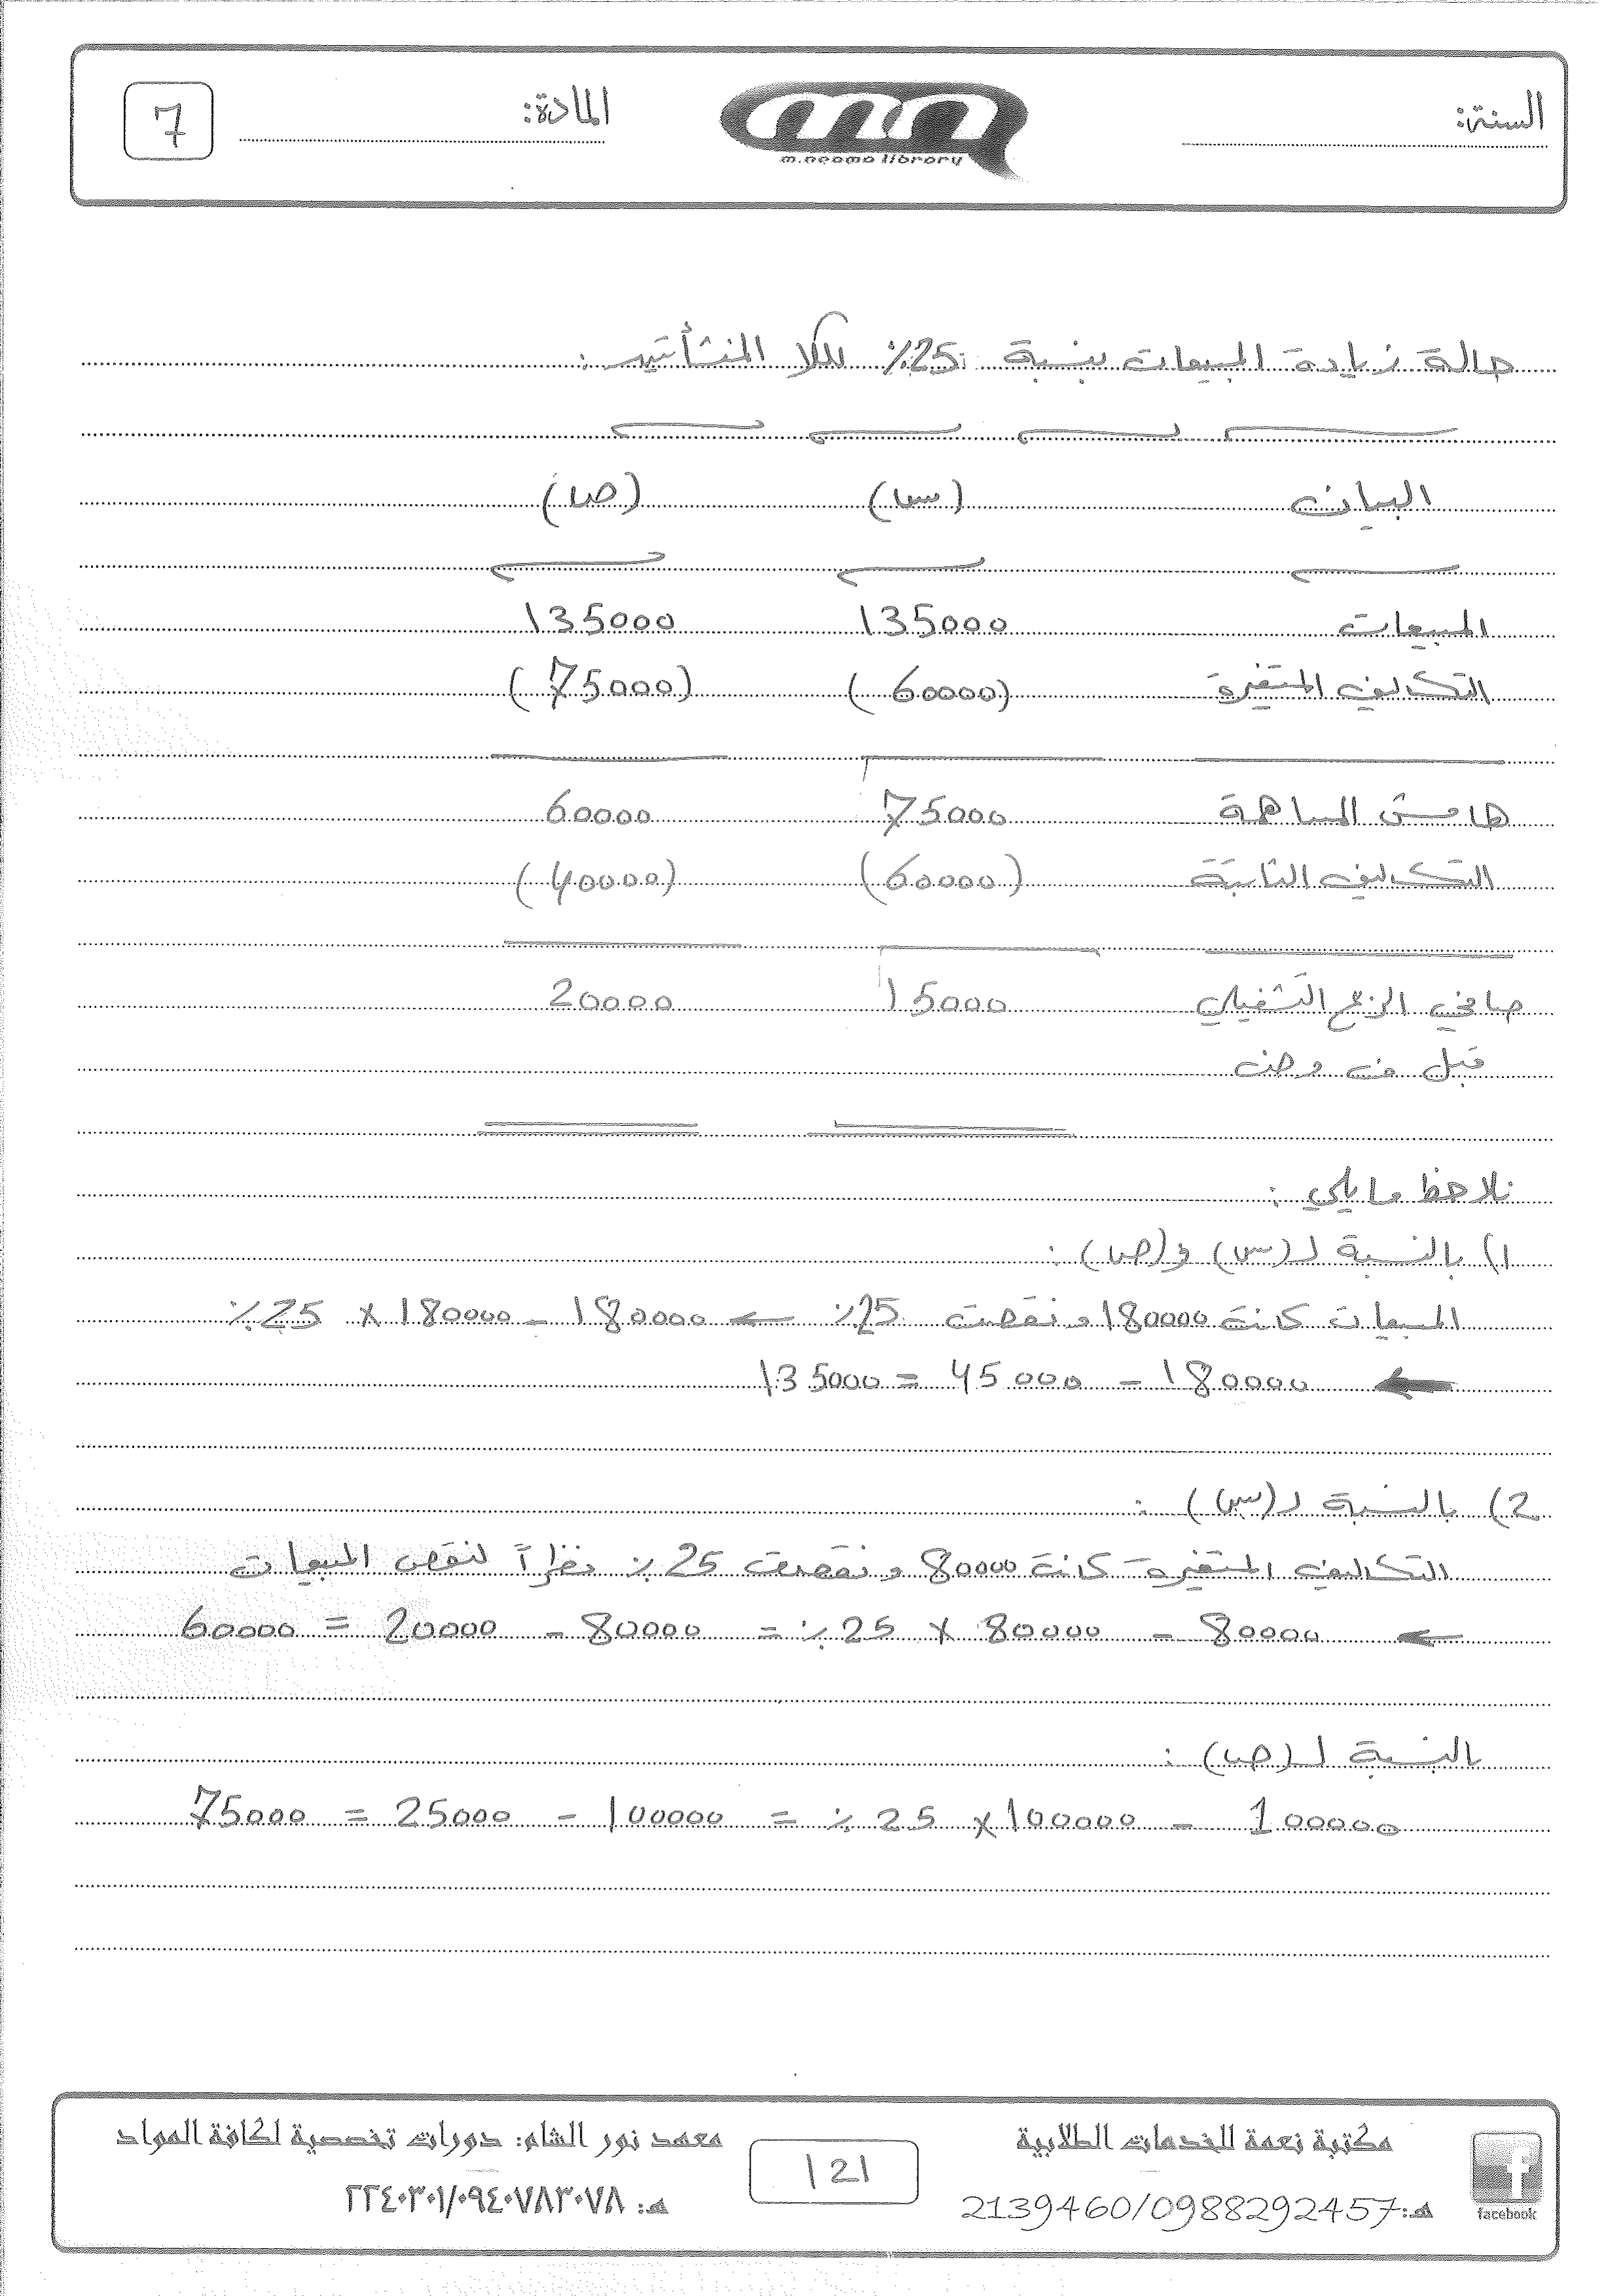 السنة:
m.neama library
المادة:
7
حالة زيادة المبيعات بنسبة 25% لكلا المنشأتين :
البيان (س) (ص)
المبيعات 135000 135000
التكاليف المتغيرة (60000) (75000)
هامش المساهمة 75000 60000
التكاليف الثابتة (60000) (40000)
صافي الربح التشغيلي 15000 20000
قبل ف و ض
نلاحظ ما يلي :
1) بالنسبة لـ (س) و (ص) :
المبيعات كانت 180000 و نقصت 25% ← 180000 - 180000 × 25%
← 180000 - 45000 = 135000
2) بالنسبة لـ (س) :
التكاليف المتغيرة كانت 80000 و نقصت 25% نظراً لنقص المبيعات
← 80000 - 80000 × 25% = 80000 - 20000 = 60000
بالنسبة لـ (ص) :
100000 - 100000 × 25% = 100000 - 25000 = 75000
facebook
مكتبة نعمة للخدمات الطلابية
هـ: 2139460/0988292457
121
معهد نور الشام: دورات تخصصية لكافة المواد
هـ: ٢٢٤٠٣٠١/٠٩٤٠٧٨٣٠٧٨